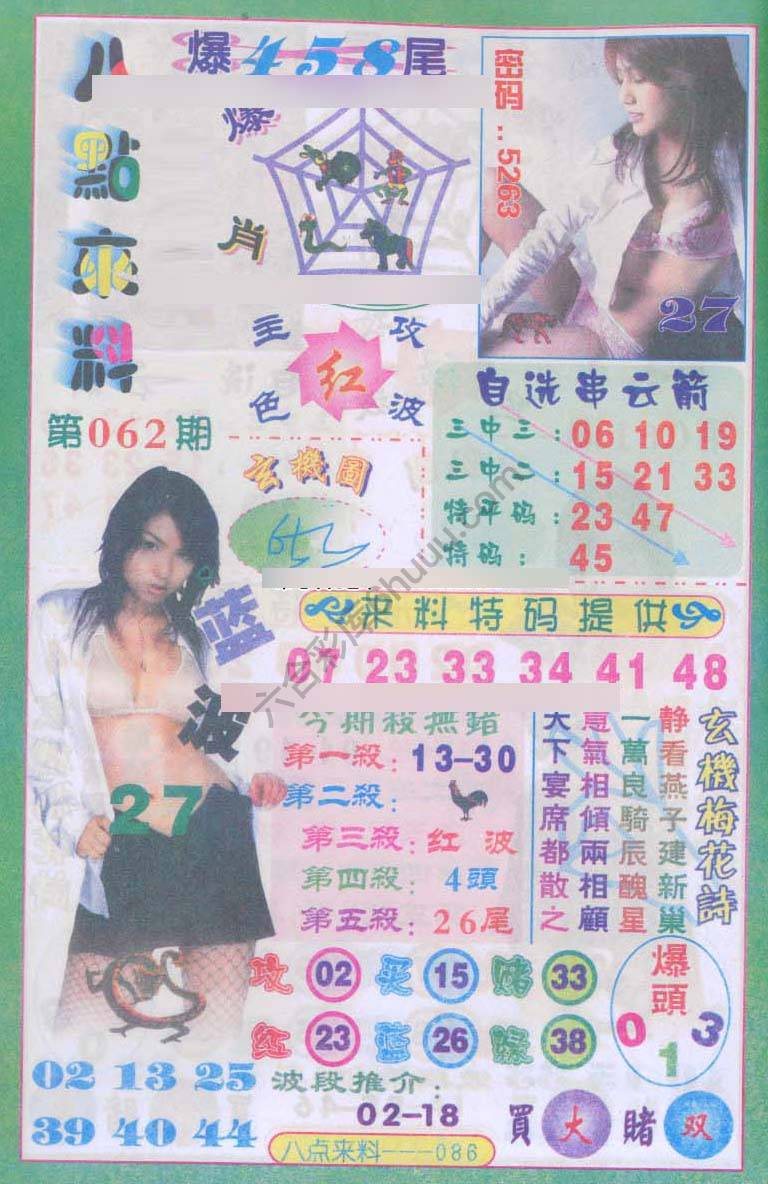 八點來料
爆458尾
爆肖
密码..5263
27
主攻
红
色波
第062期
玄機圖
自选串云箭
三中三:06 10 19
三中二:15 21 33
特平码:23 47
特码:45
来料特码提供
07 23 33 34 41 48
蓝波
27
今期殺無錯
第一殺:13-30
第二殺:
第三殺:红波
第四殺:4頭
第五殺:26尾
玄機梅花詩
静看燕子建新巢
一萬良騎辰醜星
意氣相傾兩相顧
天下宴席都散之
攻 02 买 15 赌 33
红 23 蓝 26 綠 38
爆頭
0 1 3
02 13 25
39 40 44
波段推介:
02-18
買大賭双
八点来料---086